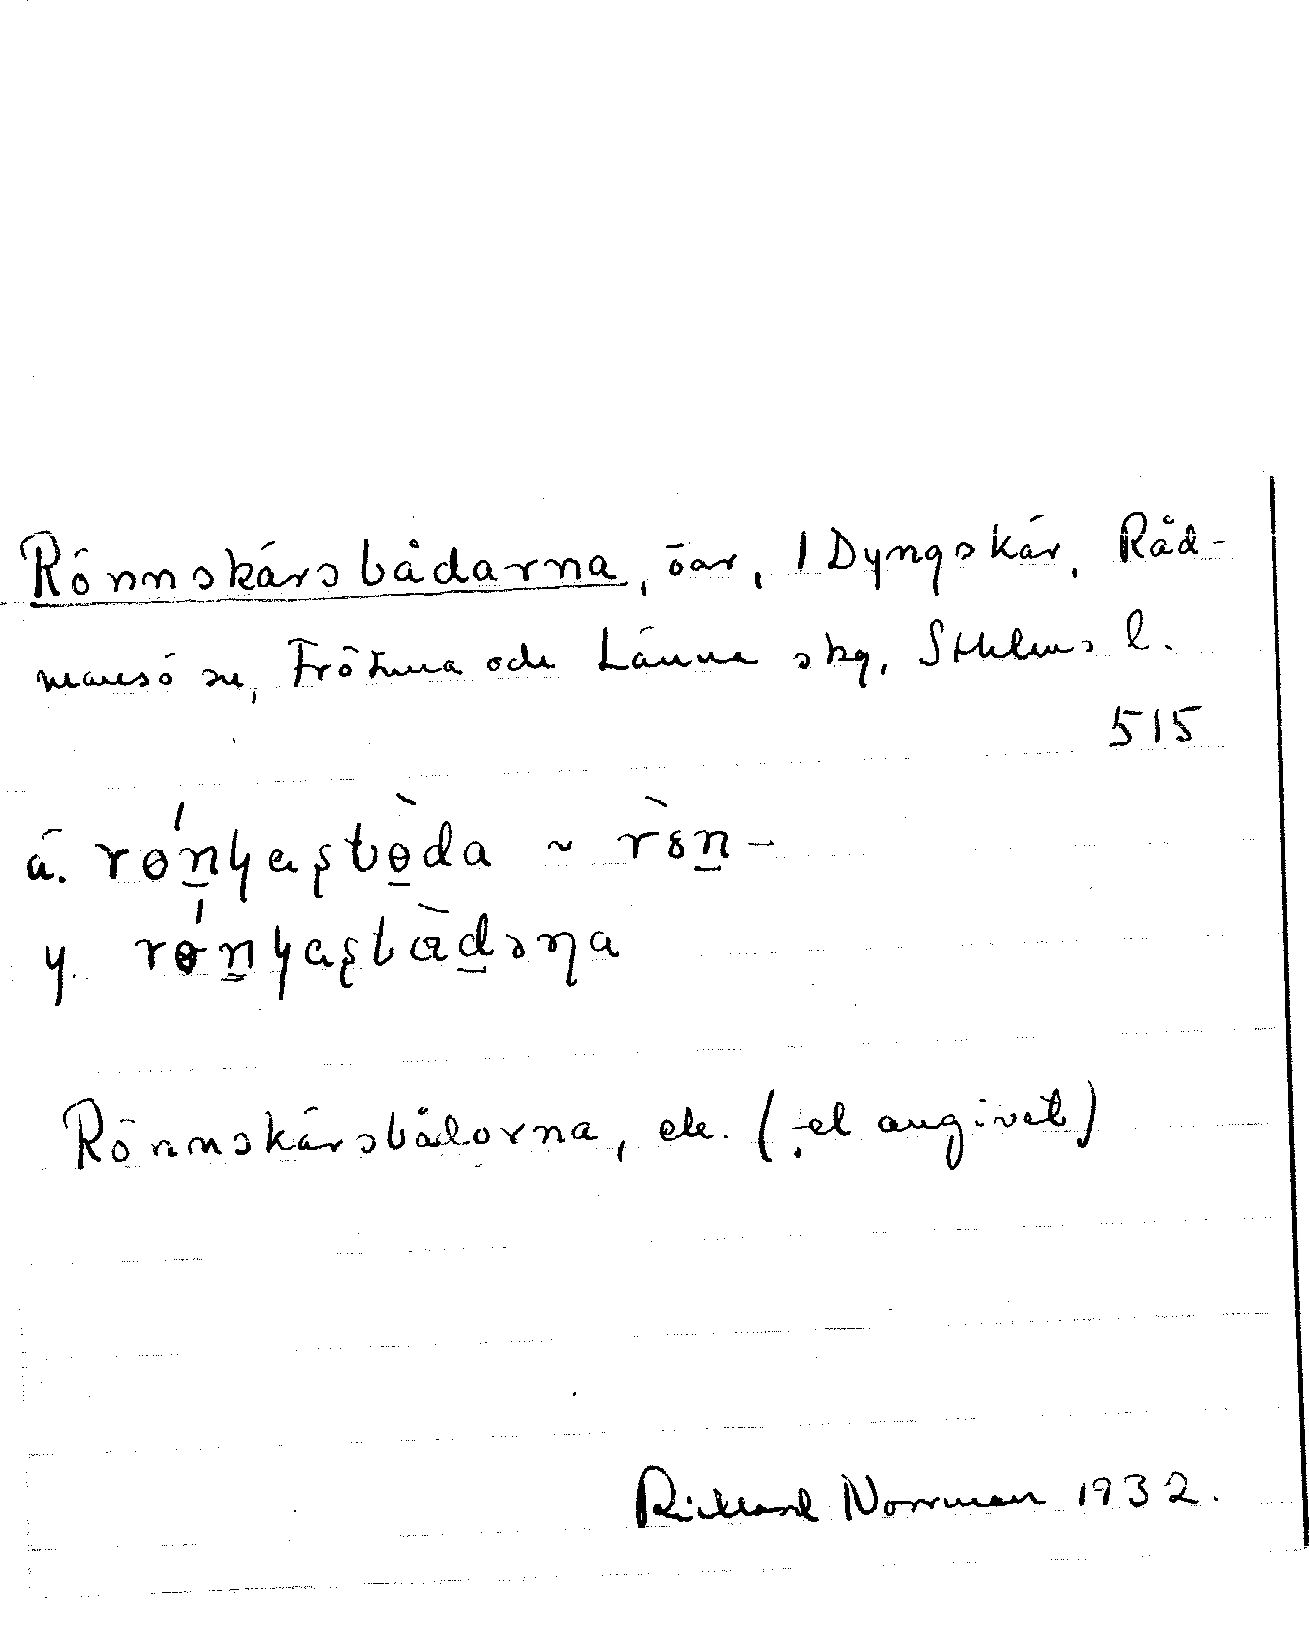 Rönnskärsbådarna, öar, 1 Dyngskär, Råd-
mansö sn, Frötuna och Länna skg, Sthlms l.
515
ä. rɵ́n̲ɥaʂbɵ̲̀da ~ rɵ̀n̲-
y. rɵ́n̲ɥaʂbàd̲əɳa
Rönnskärsbådorna, ek. (ej angivet)
Rickard Norrman 1932.